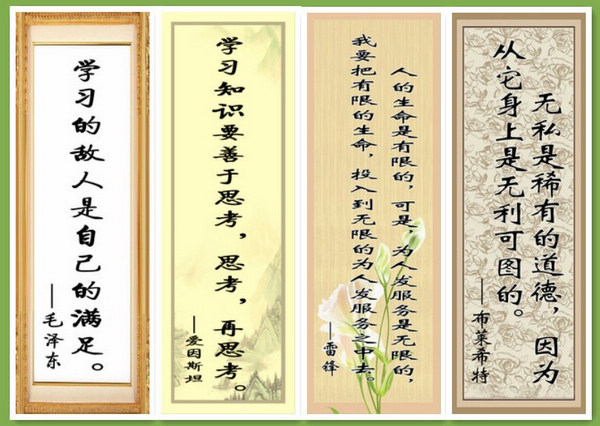 学习的敌人是自己的满足。
——毛泽东
学习知识要善于思考，思考，再思考。
——爱因斯坦
人的生命是有限的，可是，为人民服务是无限的，
我要把有限的生命，投入到无限的为人民服务之中去。
——雷锋
无私是稀有的道德，因为
从它身上是无利可图的。
——布莱希特